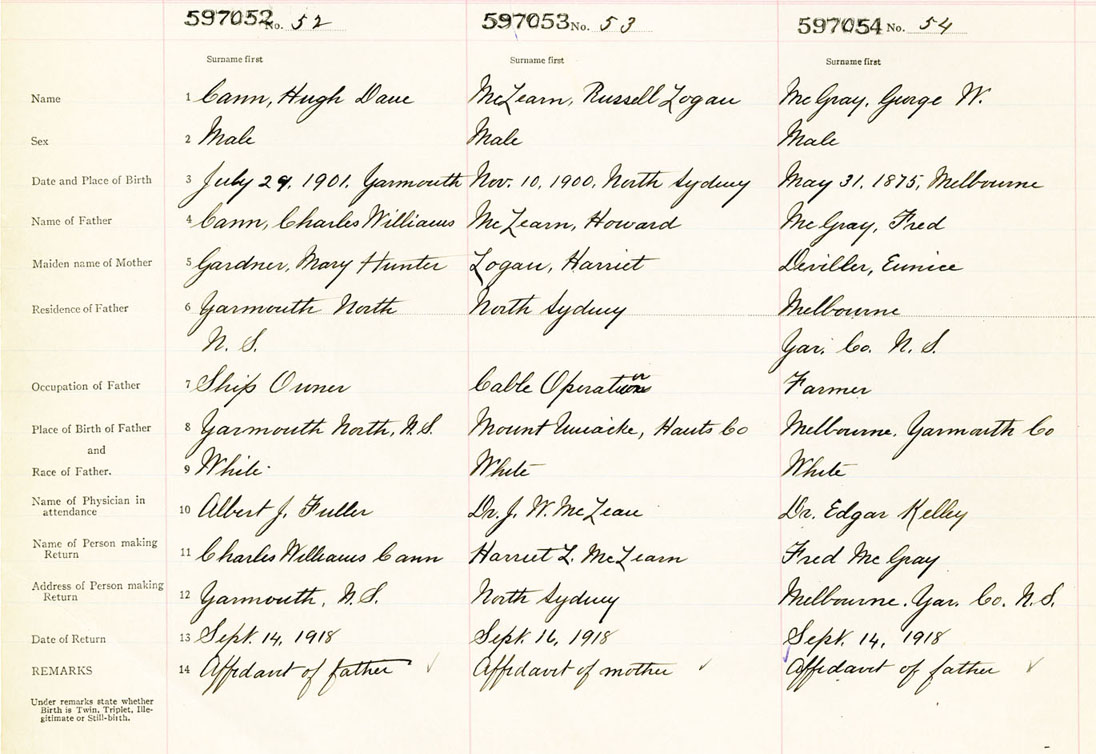 597052 No. 52 597053 No. 53 597054 No. 54
Surname first Surname first Surname first
Name 1 Cann, Hugh Dane McLearn, Russell Logan McGray, George W.
Sex 2 Male Male Male
Date and Place of Birth 3 July 29, 1901, Yarmouth Nov. 10, 1900, North Sydney May 31, 1875, Melbourne
Name of Father 4 Cann, Charles Williams McLearn, Howard McGray, Fred
Maiden name of Mother 5 Gardner, Mary Hunter Logan, Harriet Deviller, Eunice
Residence of Father 6 Yarmouth North North Sydney Melbourne
N. S. Yar. Co. N. S.
Occupation of Father 7 Ship Owner Cable Operator Farmer
Place of Birth of Father 8 Yarmouth North, N.S. Mount Uniacke, Hants Co Melbourne, Yarmouth Co
and
Race of Father. 9 White White White
Name of Physician in
attendance 10 Albert J. Fuller Dr. J. W. McLean Dr. Edgar Kelley
Name of Person making
Return 11 Charles Williams Cann Harriet L. McLearn Fred McGray
Address of Person making
Return 12 Yarmouth, N.S. North Sydney Melbourne. Yar. Co. N.S.
Date of Return 13 Sept. 14, 1918 Sept. 16, 1918 Sept. 14, 1918
REMARKS 14 Affidavit of father Affidavit of mother Affidavit of father
Under remarks state whether
Birth is Twin, Triplet, Ille-
gitimate or Still-birth.